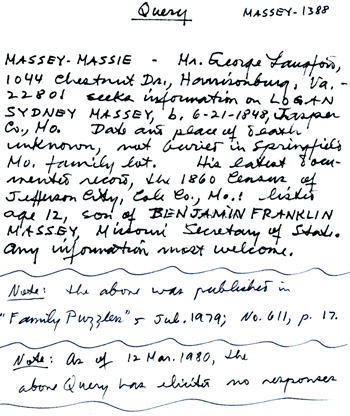 Query MASSEY-1388
MASSEY-MASSIE - Mr. George Langford,
1044 Chestnut Dr., Harrisonburg, Va.-
22801 seeks information on LOGAN
SYDNEY MASSEY, b. 6-21-1848, Jasper
Co., Mo. Date and place of death
unknown, not buried in Springfield
Mo. family lot. His latest docu-
mented record, the 1860 Census of
Jefferson City, Cole Co., Mo.: listed
age 12, son of BENJAMIN FRANKLIN
MASSEY, Missouri Secretary of State.
Any information most welcome.
Note: the above was published in
"Family Puzzlers" Jul. 1979; No. 611, p. 17.
Note: As of 12 Mar. 1980, the
above Query has elicited no responses